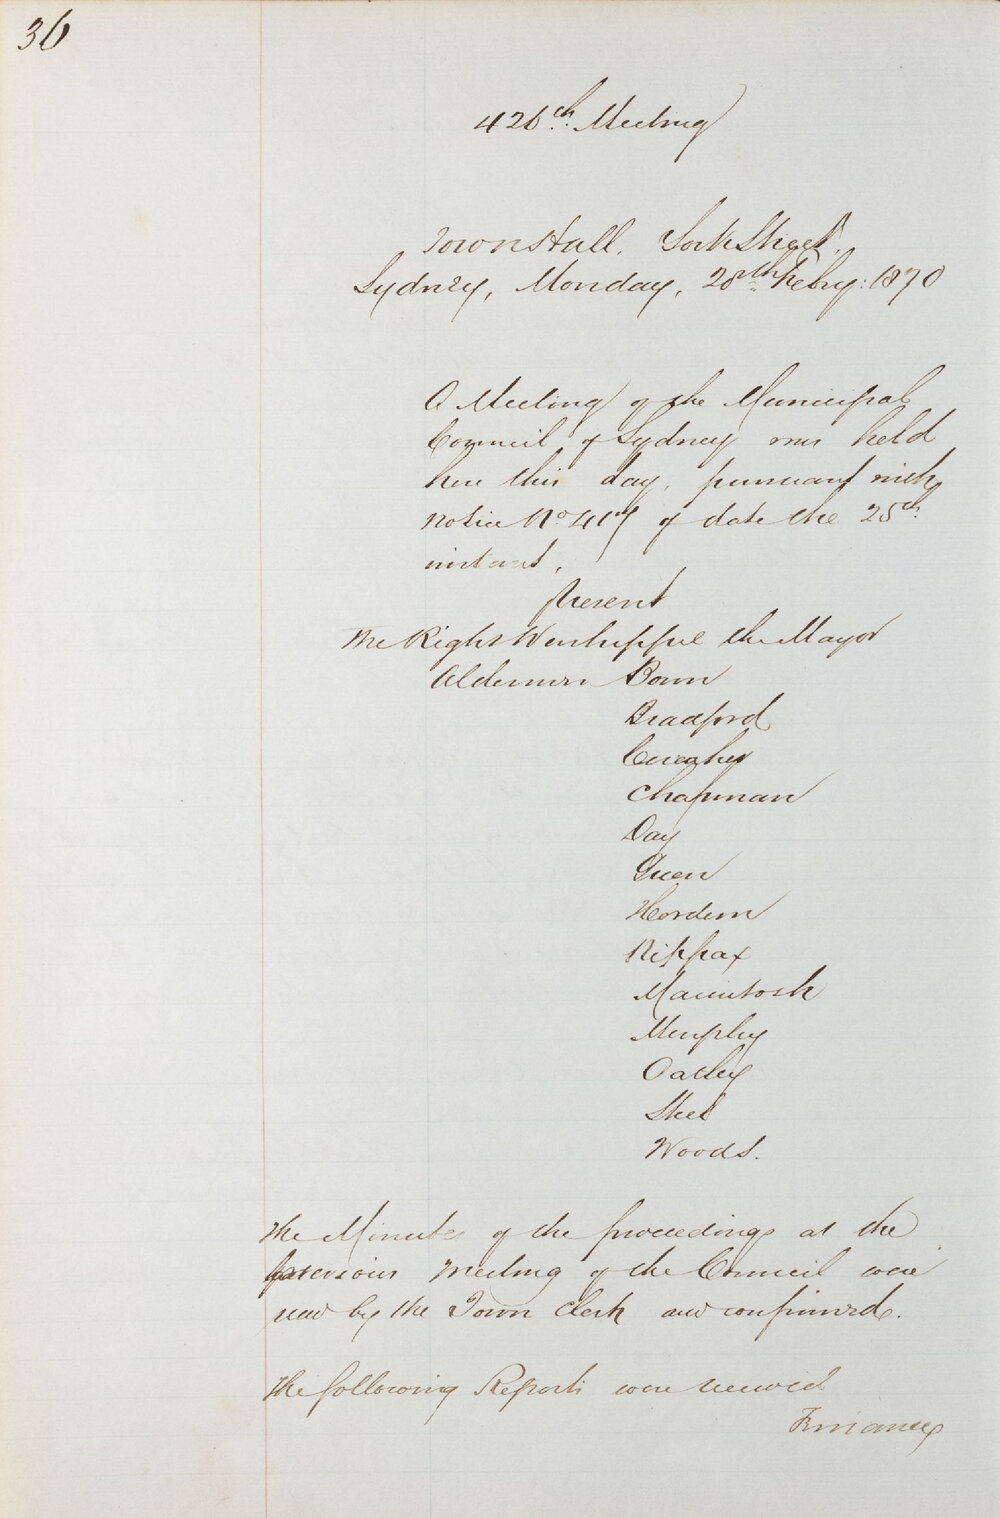 36
426th Meeting
Town Hall. York Street.
Sydney, Monday, 28th Febry: 1870
A Meeting of the Municipal
Council of Sydney was held
here this day, pursuant with
notice No 419 of date the 25th
instant.
Present
The Right Worshipful the Mayor
Aldermen Bown
Bradford
Caraher
Chapman
Day
Green
Hordern
Kippax
Macintosh
Murphy
Oatley
Steel
Woods.
The Minutes of the proceedings at the
previous Meeting of the Council were
read by the Town Clerk and confirmed.
The following Reports were received
Finance